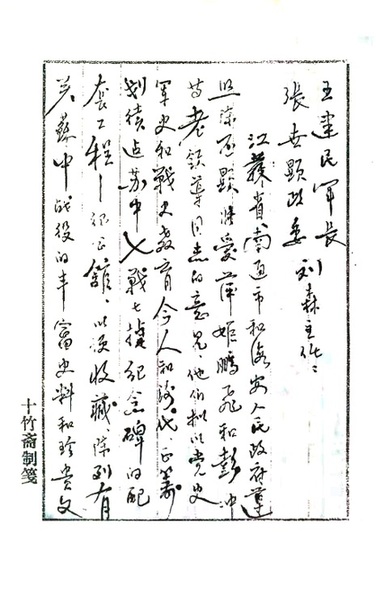 王建民军长
张世显政委 刘森主任：
江苏省南通市和海安人民政府遵
照陈丕显张爱萍姬鹏飞和彭冲
等老领导同志的意见，他们拟以党史
军史和战史教育今人和后代，正筹
划续建苏中七战七捷纪念碑的配
套工程—纪念馆，以便收藏陈列有
关苏中战役的丰富史料和珍贵文
十竹斋制笺